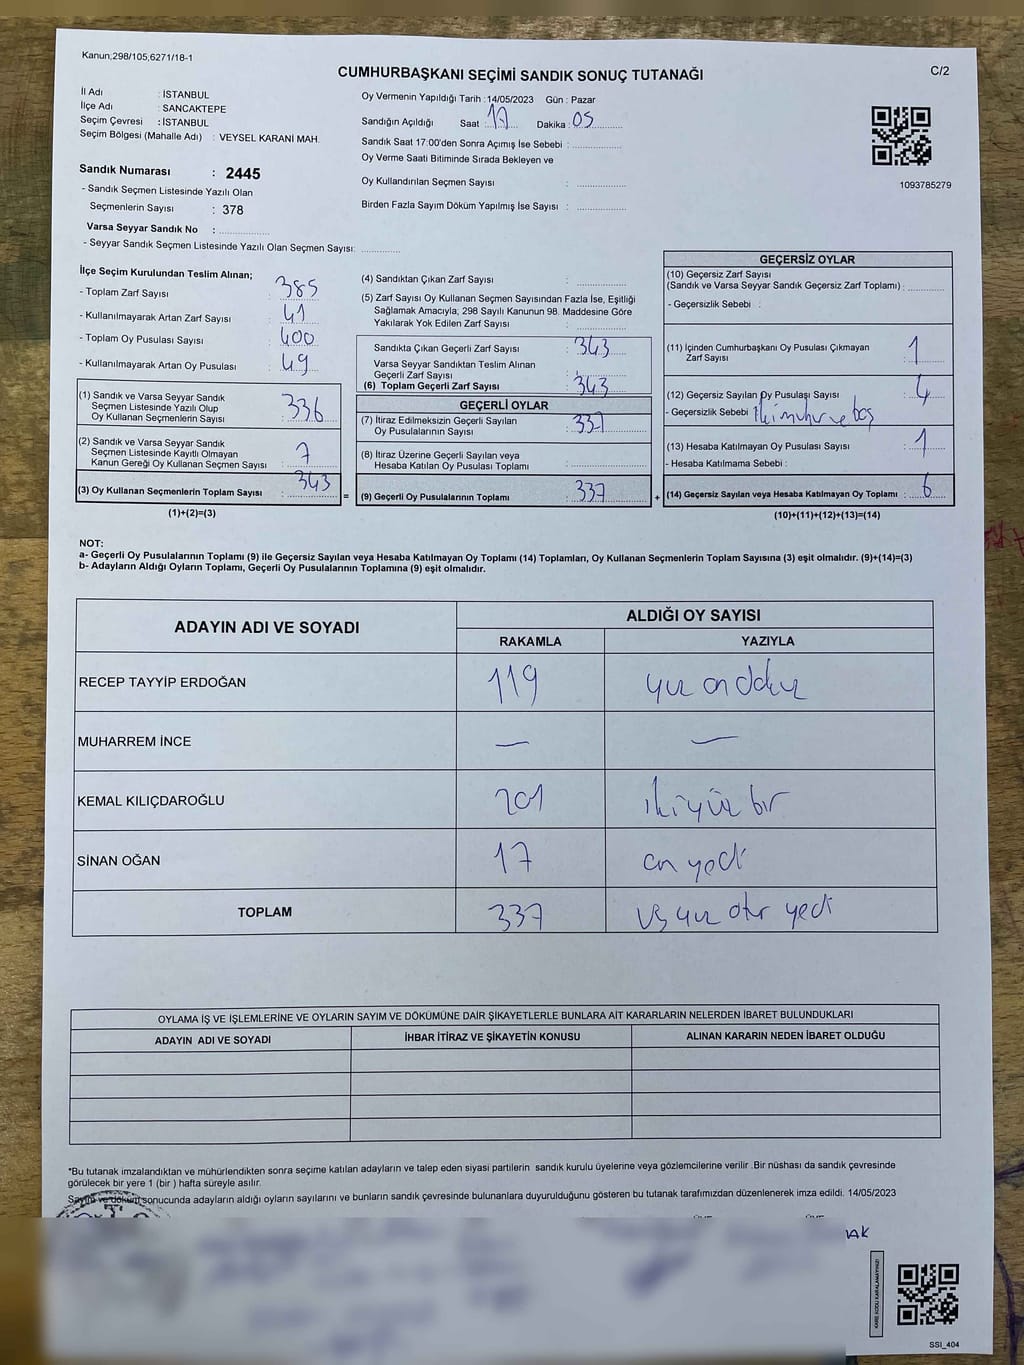 Kanun;298/105,6271/18-1
CUMHURBAŞKANI SEÇİMİ SANDIK SONUÇ TUTANAĞI
C/2
İl Adı : İSTANBUL
İlçe Adı : SANCAKTEPE
Seçim Çevresi : İSTANBUL
Seçim Bölgesi (Mahalle Adı) : VEYSEL KARANİ MAH.
Sandık Numarası : 2445
- Sandık Seçmen Listesinde Yazılı Olan
Seçmenlerin Sayısı : 378
Varsa Seyyar Sandık No :
- Seyyar Sandık Seçmen Listesinde Yazılı Olan Seçmen Sayısı:
Oy Vermenin Yapıldığı Tarih :14/05/2023 Gün : Pazar
Sandığın Açıldığı Saat : 17 Dakika : 05
Sandık Saat 17:00'den Sonra Açımış İse Sebebi :
Oy Verme Saati Bitiminde Sırada Bekleyen ve
Oy Kullandırılan Seçmen Sayısı :
Birden Fazla Sayım Döküm Yapılmış İse Sayısı :
1093785279
İlçe Seçim Kurulundan Teslim Alınan;
- Toplam Zarf Sayısı : 385
- Kullanılmayarak Artan Zarf Sayısı : 41
- Toplam Oy Pusulası Sayısı : 400
- Kullanılmayarak Artan Oy Pusulası : 49
(1) Sandık ve Varsa Seyyar Sandık
Seçmen Listesinde Yazılı Olup
Oy Kullanan Seçmenlerin Sayısı : 336
(2) Sandık ve Varsa Seyyar Sandık
Seçmen Listesinde Kayıtlı Olmayan
Kanun Gereği Oy Kullanan Seçmen Sayısı : 7
(3) Oy Kullanan Seçmenlerin Toplam Sayısı : 343 =
(1)+(2)=(3)
(4) Sandıktan Çıkan Zarf Sayısı :
(5) Zarf Sayısı Oy Kullanan Seçmen Sayısından Fazla İse, Eşitliği
Sağlamak Amacıyla; 298 Sayılı Kanunun 98. Maddesine Göre
Yakılarak Yok Edilen Zarf Sayısı :
Sandıkta Çıkan Geçerli Zarf Sayısı : 343
Varsa Seyyar Sandıktan Teslim Alınan
Geçerli Zarf Sayısı :
(6) Toplam Geçerli Zarf Sayısı : 343
GEÇERLİ OYLAR
(7) İtiraz Edilmeksizin Geçerli Sayılan
Oy Pusulalarının Sayısı : 337
(8) İtiraz Üzerine Geçerli Sayılan veya
Hesaba Katılan Oy Pusulası Toplamı :
(9) Geçerli Oy Pusulalarının Toplamı : 337 +
GEÇERSİZ OYLAR
(10) Geçersiz Zarf Sayısı
(Sandık ve Varsa Seyyar Sandık Geçersiz Zarf Toplamı) :
- Geçersizlik Sebebi :
(11) İçinden Cumhurbaşkanı Oy Pusulası Çıkmayan
Zarf Sayısı : 1
(12) Geçersiz Sayılan Oy Pusulası Sayısı : 4
- Geçersizlik Sebebi İki mühür ve boş
(13) Hesaba Katılmayan Oy Pusulası Sayısı : 1
- Hesaba Katılmama Sebebi :
(14) Geçersiz Sayılan veya Hesaba Katılmayan Oy Toplamı : 6
(10)+(11)+(12)+(13)=(14)
NOT:
a- Geçerli Oy Pusulalarının Toplamı (9) ile Geçersiz Sayılan veya Hesaba Katılmayan Oy Toplamı (14) Toplamları, Oy Kullanan Seçmenlerin Toplam Sayısına (3) eşit olmalıdır. (9)+(14)=(3)
b- Adayların Aldığı Oyların Toplamı, Geçerli Oy Pusulalarının Toplamına (9) eşit olmalıdır.
ADAYIN ADI VE SOYADI ALDIĞI OY SAYISI
RAKAMLA YAZIYLA
RECEP TAYYİP ERDOĞAN 119 yüz on dokuz
MUHARREM İNCE — —
KEMAL KILIÇDAROĞLU 201 iki yüz bir
SİNAN OĞAN 17 on yedi
TOPLAM 337 üç yüz otuz yedi
OYLAMA İŞ VE İŞLEMLERİNE VE OYLARIN SAYIM VE DÖKÜMÜNE DAİR ŞİKAYETLERLE BUNLARA AİT KARARLARIN NELERDEN İBARET BULUNDUKLARI
ADAYIN ADI VE SOYADI İHBAR İTİRAZ VE ŞİKAYETİN KONUSU ALINAN KARARIN NEDEN İBARET OLDUĞU
*Bu tutanak imzalandıktan ve mühürlendikten sonra seçime katılan adayların ve talep eden siyasi partilerin sandık kurulu üyelerine veya gözlemcilerine verilir .Bir nüshası da sandık çevresinde
görülecek bir yere 1 (bir ) hafta süreyle asılır.
Sayım ve döküm sonucunda adayların aldığı oyların sayılarını ve bunların sandık çevresinde bulunanlara duyurulduğunu gösteren bu tutanak tarafımızdan düzenlenerek imza edildi. 14/05/2023
KARE KODU KARALAMAYINIZ!
SSI_404